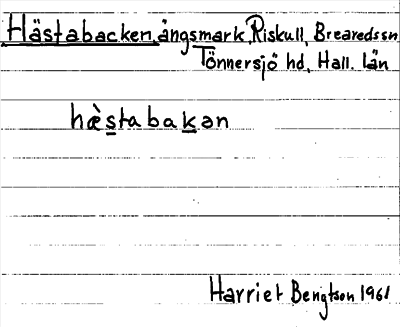 Hästabacken, ängsmark, Riskull, Brearedssn
Tönnersjö hd, Hall. län
hæ̀stabakən
Harriet Bengtson 1961